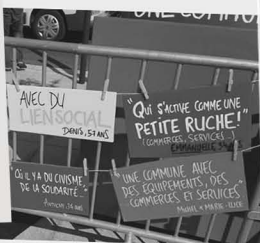 UNE COMMUN
AVEC DU
LIEN SOCIAL
DENIS, 57 ANS
"QUI S'ACTIVE COMME UNE
PETITE RUCHE!"
(COMMERCES, SERVICES...)
EMMANUELLE
"OÙ IL Y A DU CIVISME,
DE LA SOLIDARITÉ."
UNE COMMUNE AVEC
DES ÉQUIPEMENTS, DES
COMMERCES ET SERVICES